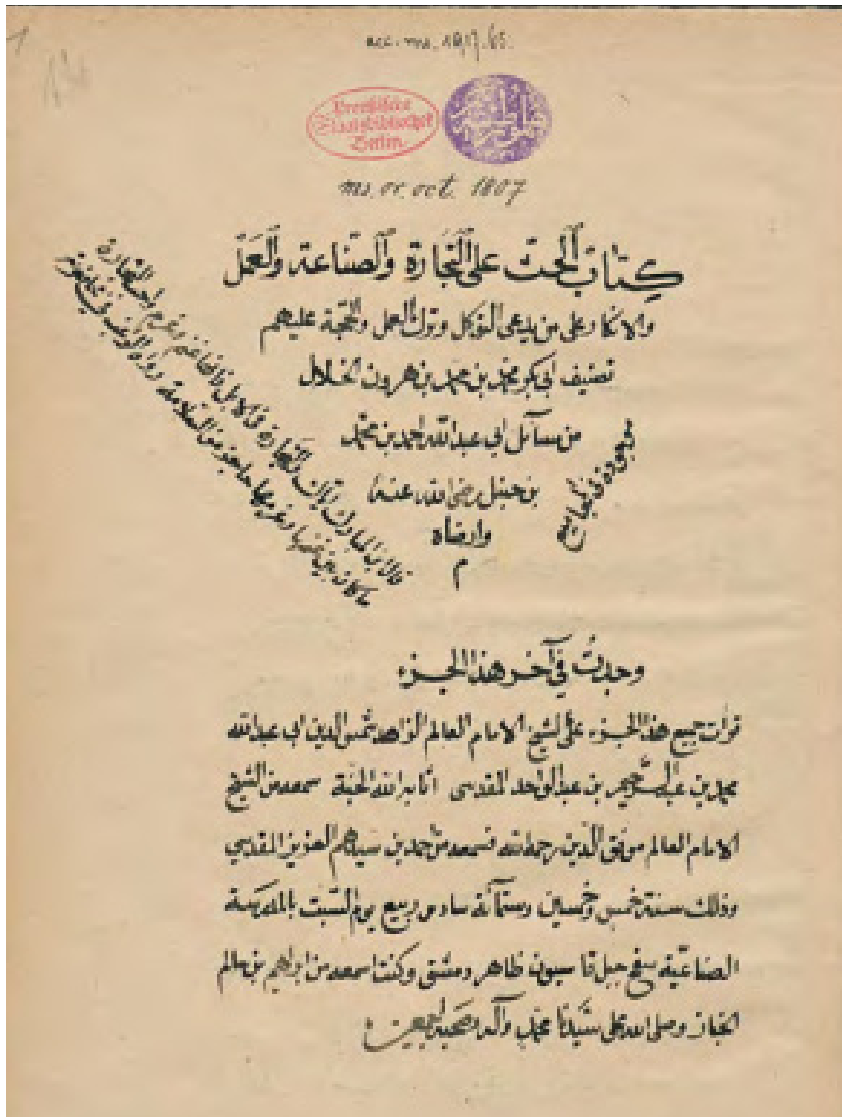 1
acc. ms. 1917.65.
Preußische
Staatsbibliothek
Berlin
ms. or. oct. 1807
كتاب الحث على التجارة والصناعة والعمل
والانكار على من يدعي التوكل وترك العمل والحجة عليهم
تصنيف ابي بكر محمد بن هرون الخلال
من مسآئل ابي عبد الله احمد بن محمد
بن حنبل رضي الله عنه
وارضاه
م
موجودة في
قال ابن المبارك
وجدت في آخر هذا الجزء
قرات جميع هذا الجزء على الشيخ الامام العالم الزاهد شمس الدين ابي عبد الله
محمد بن عبد الرحيم بن عبد الواحد المقدسي اثابه الله الجنة سمعه من الشيخ
الامام العالم موفق الدين رحمه الله
وذلك سنة خمس وخمسين وستمآئة سادس ربيع يوم السبت بالمدرسة
الضيائية سفح جبل قاسيون ظاهر دمشق وكنت اسمعه من ابراهيم بن سالم
الخباز وصلى الله على سيدنا محمد وآله وصحبه اجمعين